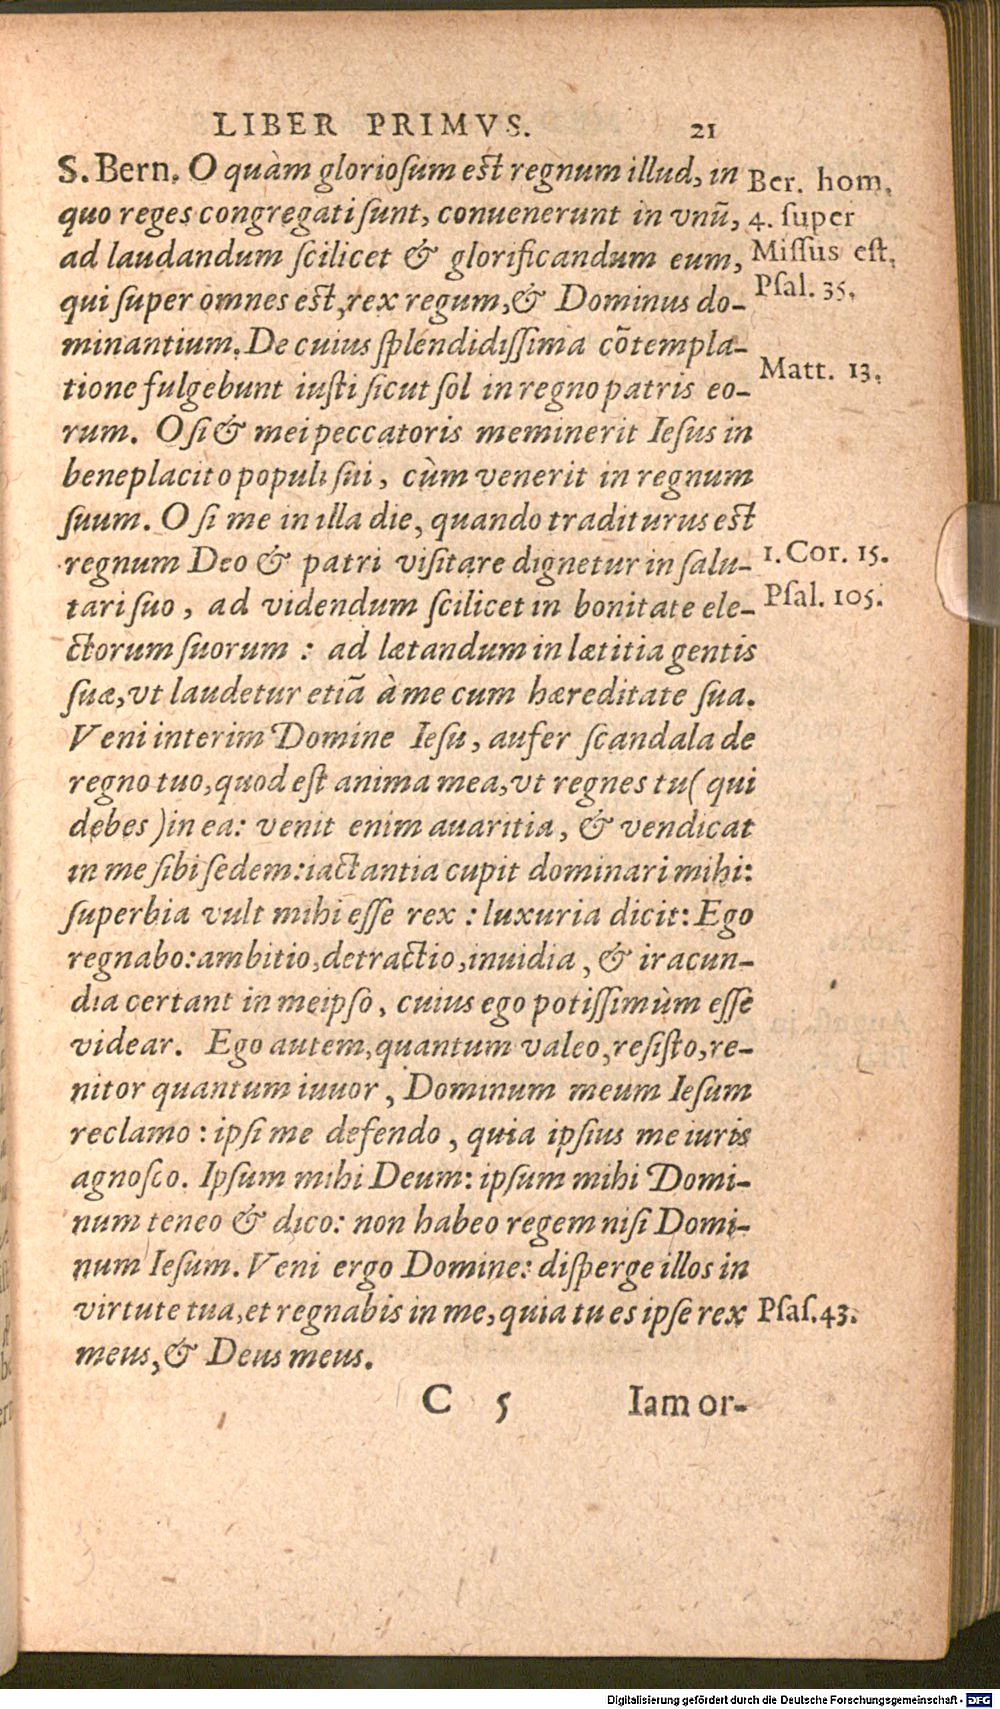 LIBER PRIMVS. 21
S. Bern. O quàm gloriosum est regnum illud, in
quo reges congregati sunt, conuenerunt in vnū,
ad laudandum scilicet & glorificandum eum,
qui super omnes est, rex regum, & Dominus do-
minantium. De cuius splendidissima cōtempla-
tione fulgebunt iusti sicut sol in regno patris eo-
rum. O si & mei peccatoris meminerit Iesus in
beneplacito populi sui, cùm venerit in regnum
suum. O si me in illa die, quando traditurus est
regnum Deo & patri visitare dignetur in salu-
tari suo, ad videndum scilicet in bonitate ele-
ctorum suorum : ad lætandum in lætitia gentis
suæ, vt laudetur etiā à me cum hæreditate sua.
Veni interim Domine Iesu, aufer scandala de
regno tuo, quod est anima mea, vt regnes tu (qui
debes) in ea: venit enim auaritia, & vendicat
in me sibi sedem: iactantia cupit dominari mihi:
superbia vult mihi esse rex : luxuria dicit: Ego
regnabo: ambitio, detractio, inuidia, & iracun-
dia certant in meipso, cuius ego potissimùm esse
videar. Ego autem, quantum valeo, resisto, re-
nitor quantum iuuor, Dominum meum Iesum
reclamo: ipsi me defendo, quia ipsius me iuris
agnosco. Ipsum mihi Deum: ipsum mihi Domi-
num teneo & dico: non habeo regem nisi Domi-
num Iesum. Veni ergo Domine: disperge illos in
virtute tua, et regnabis in me, quia tu es ipse rex
meus, & Deus meus.
C 5 Iam or-
Ber. hom.
4. super
Missus est.
Psal. 35.
Matt. 13.
1. Cor. 15.
Psal. 105.
Psal. 43.
Digitalisierung gefördert durch die Deutsche Forschungsgemeinschaft - DFG